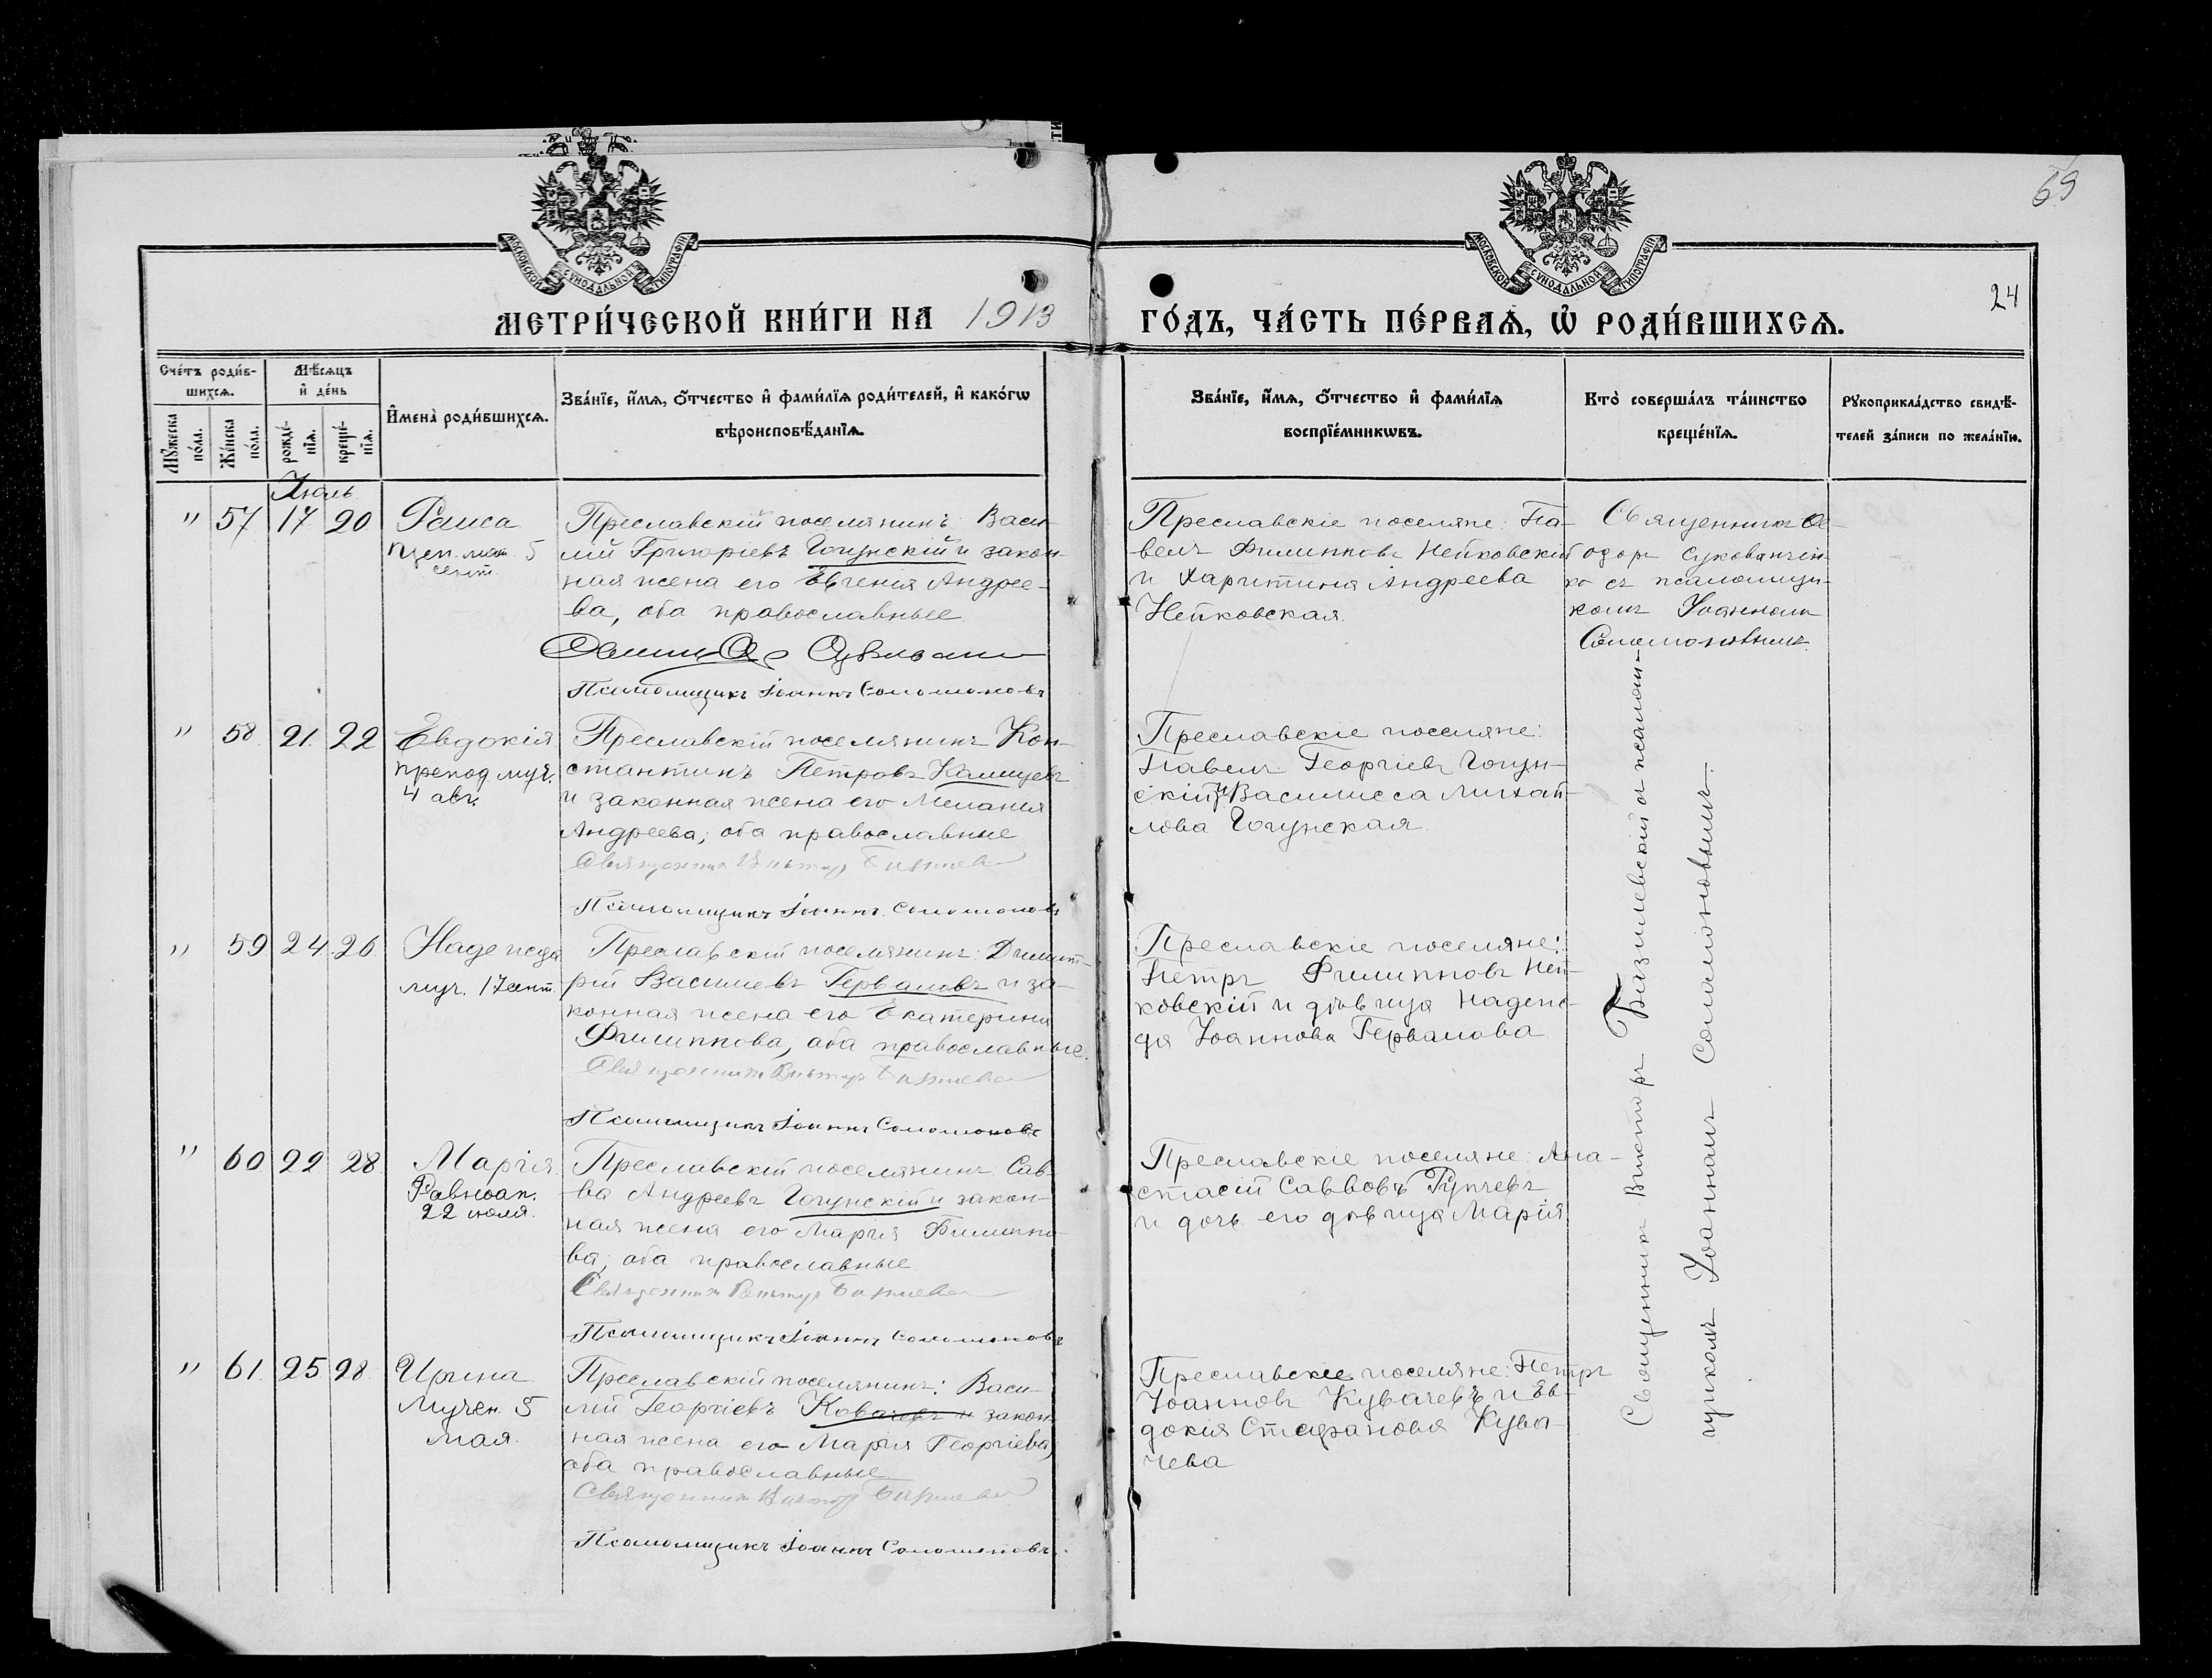 69
МОСКОВСКОЙ СѴНОДАЛЬНОЙ ТИПОГРАФІИ.
МОСКОВСКОЙ СѴНОДАЛЬНОЙ ТИПОГРАФІИ.
24
МЕТРИ́ЧЕСКОЙ КНИ́ГИ НА 1913
ГО́ДЪ, ЧА́СТЬ ПЕ́РВАѦ, Ѡ҆ РОДИ́ВШИХСѦ.
Сче́тъ роди́в-
шихсѧ.
Мꙋ́жеска
по́ла.
Же́нска
по́ла.
Мѣ́сѧцъ
и҆ де́нь
рожде́-
нїѧ.
креще́-
нїѧ.
И҆мена̀ роди́вшихсѧ.
Зва́нїе, и҆́мѧ, ѻ҆́тчество и҆ фами́лїѧ роди́телей, и҆ како́гѡ
вѣроисповѣ́данїѧ.
Зва́нїе, и҆́мѧ, ѻ҆́тчество и҆ фами́лїѧ
воспрїе́мникѡвъ.
Кто̀ соверша́лъ та́инство
креще́нїѧ.
Рꙋкоприкла́дство свидѣ́-
телей за́писи по жела́нїю.
Іюль
" 57 17 20
Раиса
5
сент.
Преславскій поселянинъ: Васи-
лій Григорьевъ Гогунскій и закон-
ная жена его Евгенія Андрее-
ва, оба православные
Псаломщикъ Іоаннъ Соломоновъ
Преславскіе поселяне: Па-
велъ Филипповъ Нейковскій
и Харитина Андреева
Нейковская.
Священникъ Ѳе-
одоръ
ко съ псаломщи-
комъ Іоанномъ
Соломоновымъ.
" 58. 21. 22
Евдокія
препод. муч.
4 авг.
Преславскій поселянинъ Кон-
стантинъ Петровъ
и законная жена его Меланія
Андреева; оба православные
Священникъ Викторъ
Псаломщикъ Іоаннъ Соломоновъ
Преславскіе поселяне:
Павелъ Георгіевъ Гогун-
скій и Василисса Михай-
лова Гогунская.
" 59 24. 26.
Надежда
муч. 17 сент.
Преславскій поселянинъ: Димит-
рій Васильевъ Герваловъ и за-
конная жена его Екатерина
Филиппова, оба православные.
Священникъ Викторъ
Псаломщикъ Іоаннъ Соломоновъ
Преславскіе поселяне:
Петръ Филипповъ Ней-
ковскій и дѣвица Надеж-
да Іоаннова Гервалова
" 60 22 28
Марія
Равноап.
22 іюля.
Преславскій поселянинъ: Сав-
ва Андреевъ Гогунскій и закон-
ная жена его Марія Филиппо-
ва; оба православные.
Священникъ Викторъ
Псаломщикъ Іоаннъ Соломоновъ
Преславскіе поселяне: Ана-
стасій Саввовъ Рупчевъ
и дочь его дѣвица Марія
" 61. 25 28.
Ирина
Мучен. 5
мая.
Преславскій поселянинъ: Васи-
лій Георгіевъ Ковачевъ и закон-
ная жена его Марія Георгіева,
оба православные
Священникъ Викторъ
Псаломщикъ Іоаннъ Соломоновъ.
Преславскіе поселяне: Петръ
Іоанновъ Кувачевъ и Ев-
докія Стефанова Кува-
чева
Священникъ Викторъ съ псалом-
щикомъ Іоанномъ Соломоновымъ.